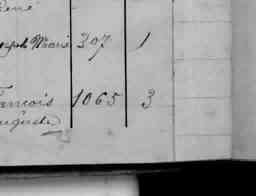 René
Joseph Marie 307 1
François 1065 3
Auguste